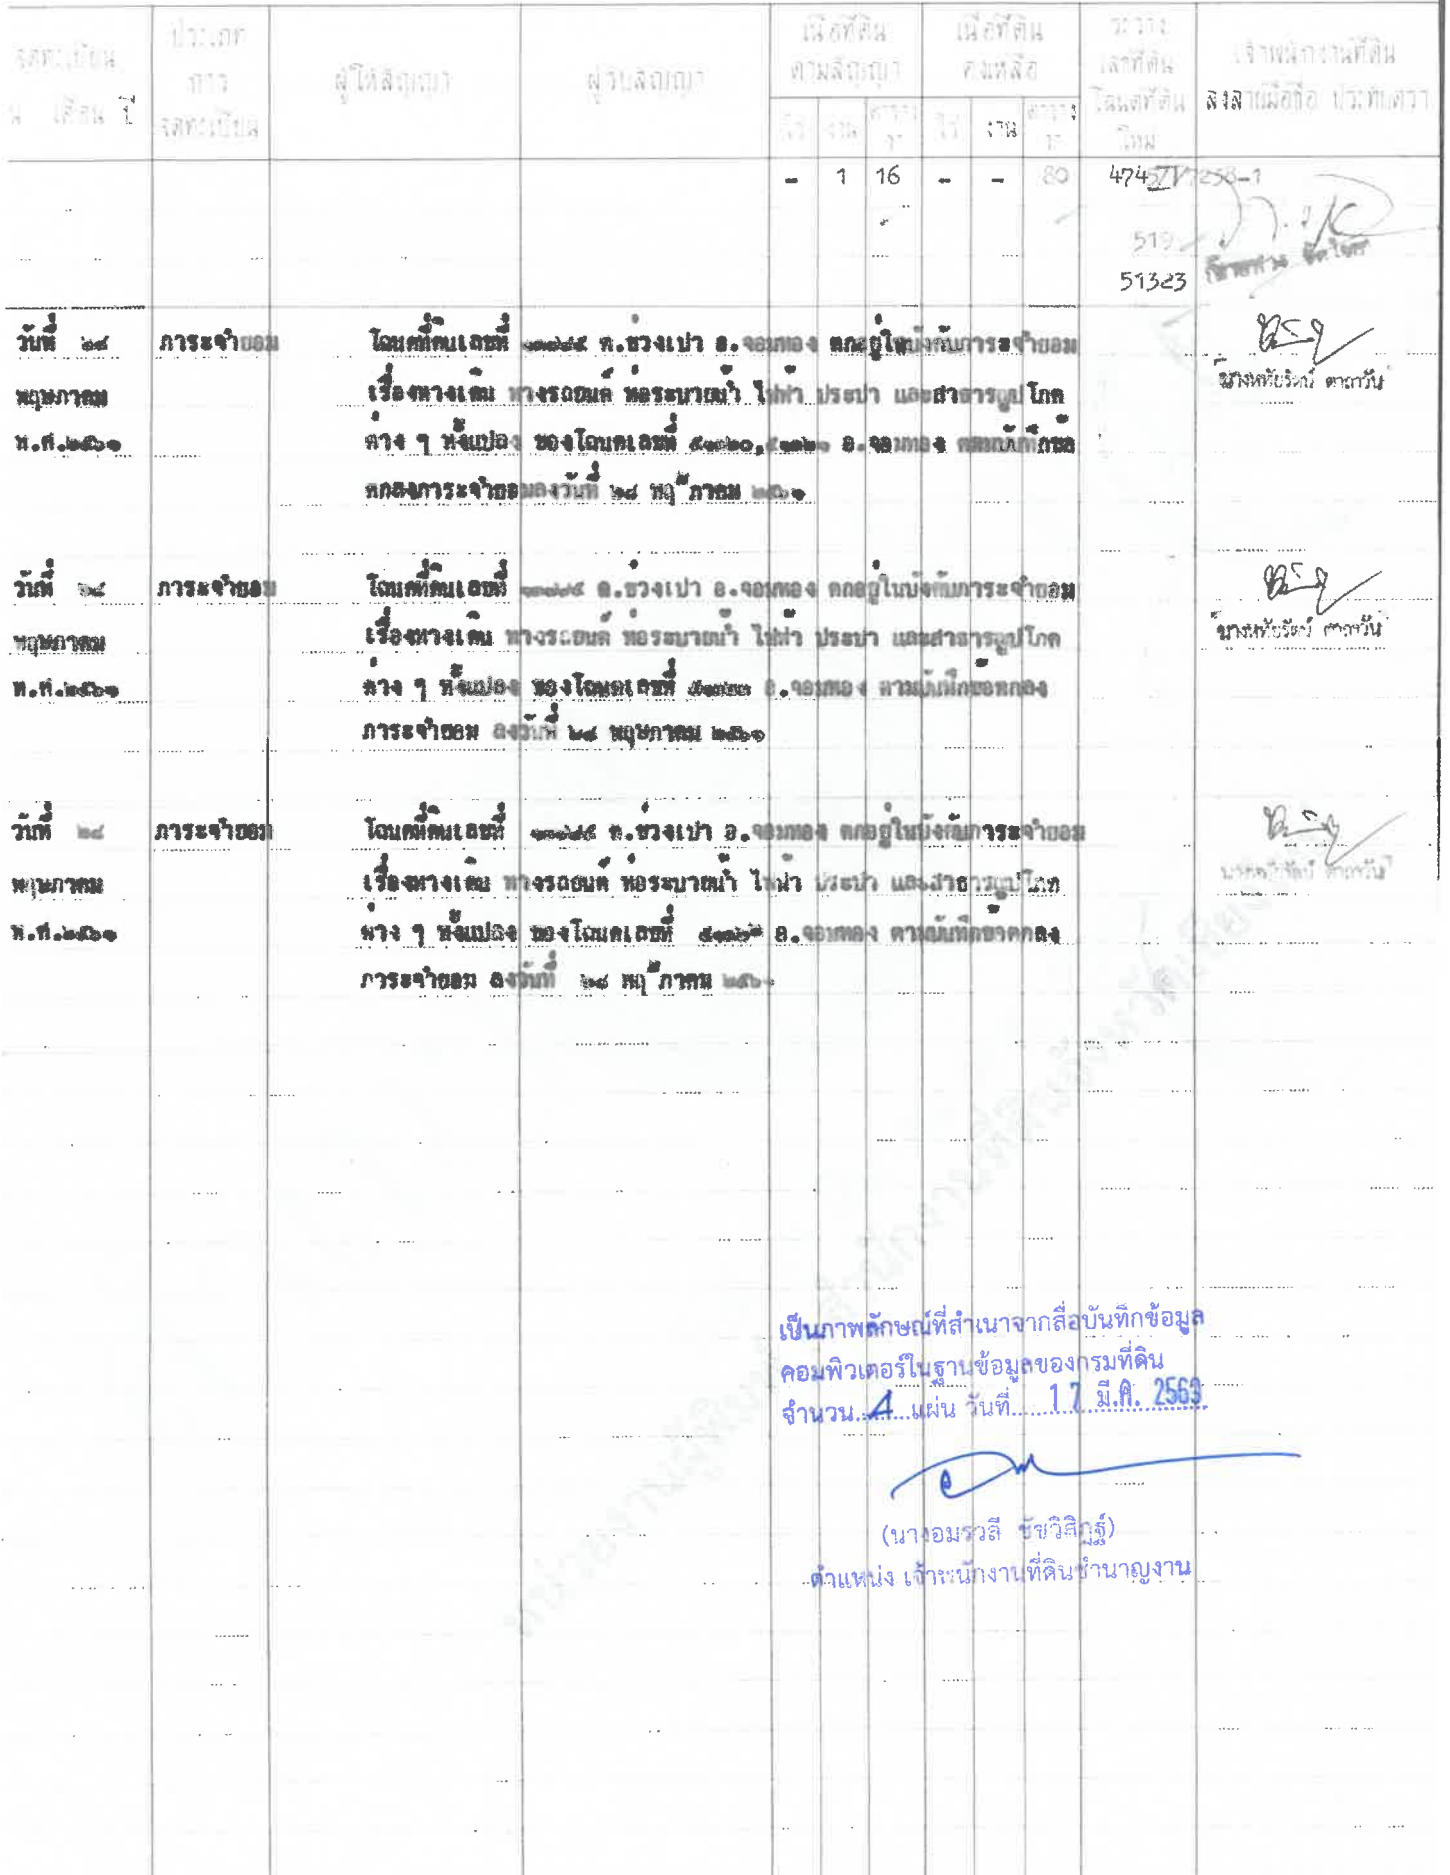 จดทะเบียน
เดือน ปี
ประเภท
การ
จดทะเบียน
ผู้ให้สัญญา
ผู้รับสัญญา
เนื้อที่ดิน
ตามสัญญา
ไร่ งาน ตาราง
วา
เนื้อที่ดิน
คงเหลือ
ไร่ งาน ตาราง
วา
ระวาง
เลขที่ดิน
โฉนดที่ดิน
ใหม่
เจ้าพนักงานที่ดิน
ลงลายมือชื่อ ประทับตรา
- 1 16 - - 80 4745 IV 7258-1
51323
วันที่ ๒๘ ภาระจำยอม โฉนดที่ดินเลขที่ ต.ข่วงเปา อ.จอมทอง ตกอยู่ในบังคับภาระจำยอม
พฤษภาคม เรื่องทางเดิน ทางรถยนต์ ท่อระบายน้ำ ไฟฟ้า ประปา และสาธารณูปโภค
พ.ศ.๒๕๖๑ ต่าง ๆ ทั้งแปลง ของโฉนดเลขที่ อ.จอมทอง ตามบันทึกข้อ
ตกลงภาระจำยอมลงวันที่ ๒๘ พฤษภาคม ๒๕๖๑
นางหทัยรัตน์ ตาถาวัน
วันที่ ๒๘ ภาระจำยอม โฉนดที่ดินเลขที่ ต.ข่วงเปา อ.จอมทอง ตกอยู่ในบังคับภาระจำยอม
พฤษภาคม เรื่องทางเดิน ทางรถยนต์ ท่อระบายน้ำ ไฟฟ้า ประปา และสาธารณูปโภค
พ.ศ.๒๕๖๑ ต่าง ๆ ทั้งแปลง ของโฉนดเลขที่ อ.จอมทอง ตามบันทึกข้อตกลง
ภาระจำยอม ลงวันที่ ๒๘ พฤษภาคม ๒๕๖๑
นางหทัยรัตน์ ตาถาวัน
วันที่ ๒๘ ภาระจำยอม โฉนดที่ดินเลขที่ ต.ข่วงเปา อ.จอมทอง ตกอยู่ในบังคับภาระจำยอม
พฤษภาคม เรื่องทางเดิน ทางรถยนต์ ท่อระบายน้ำ ไฟฟ้า ประปา และสาธารณูปโภค
พ.ศ.๒๕๖๑ ต่าง ๆ ทั้งแปลง ของโฉนดเลขที่ อ.จอมทอง ตามบันทึกข้อตกลง
ภาระจำยอม ลงวันที่ ๒๘ พฤษภาคม ๒๕๖๑
เป็นภาพลักษณ์ที่สำเนาจากสื่อบันทึกข้อมูล
คอมพิวเตอร์ในฐานข้อมูลของกรมที่ดิน
จำนวน 4 แผ่น วันที่ 17 มี.ค. 2563
(นางอมรวลี ชัยวิสิฏฐ์)
ตำแหน่ง เจ้าพนักงานที่ดินชำนาญงาน